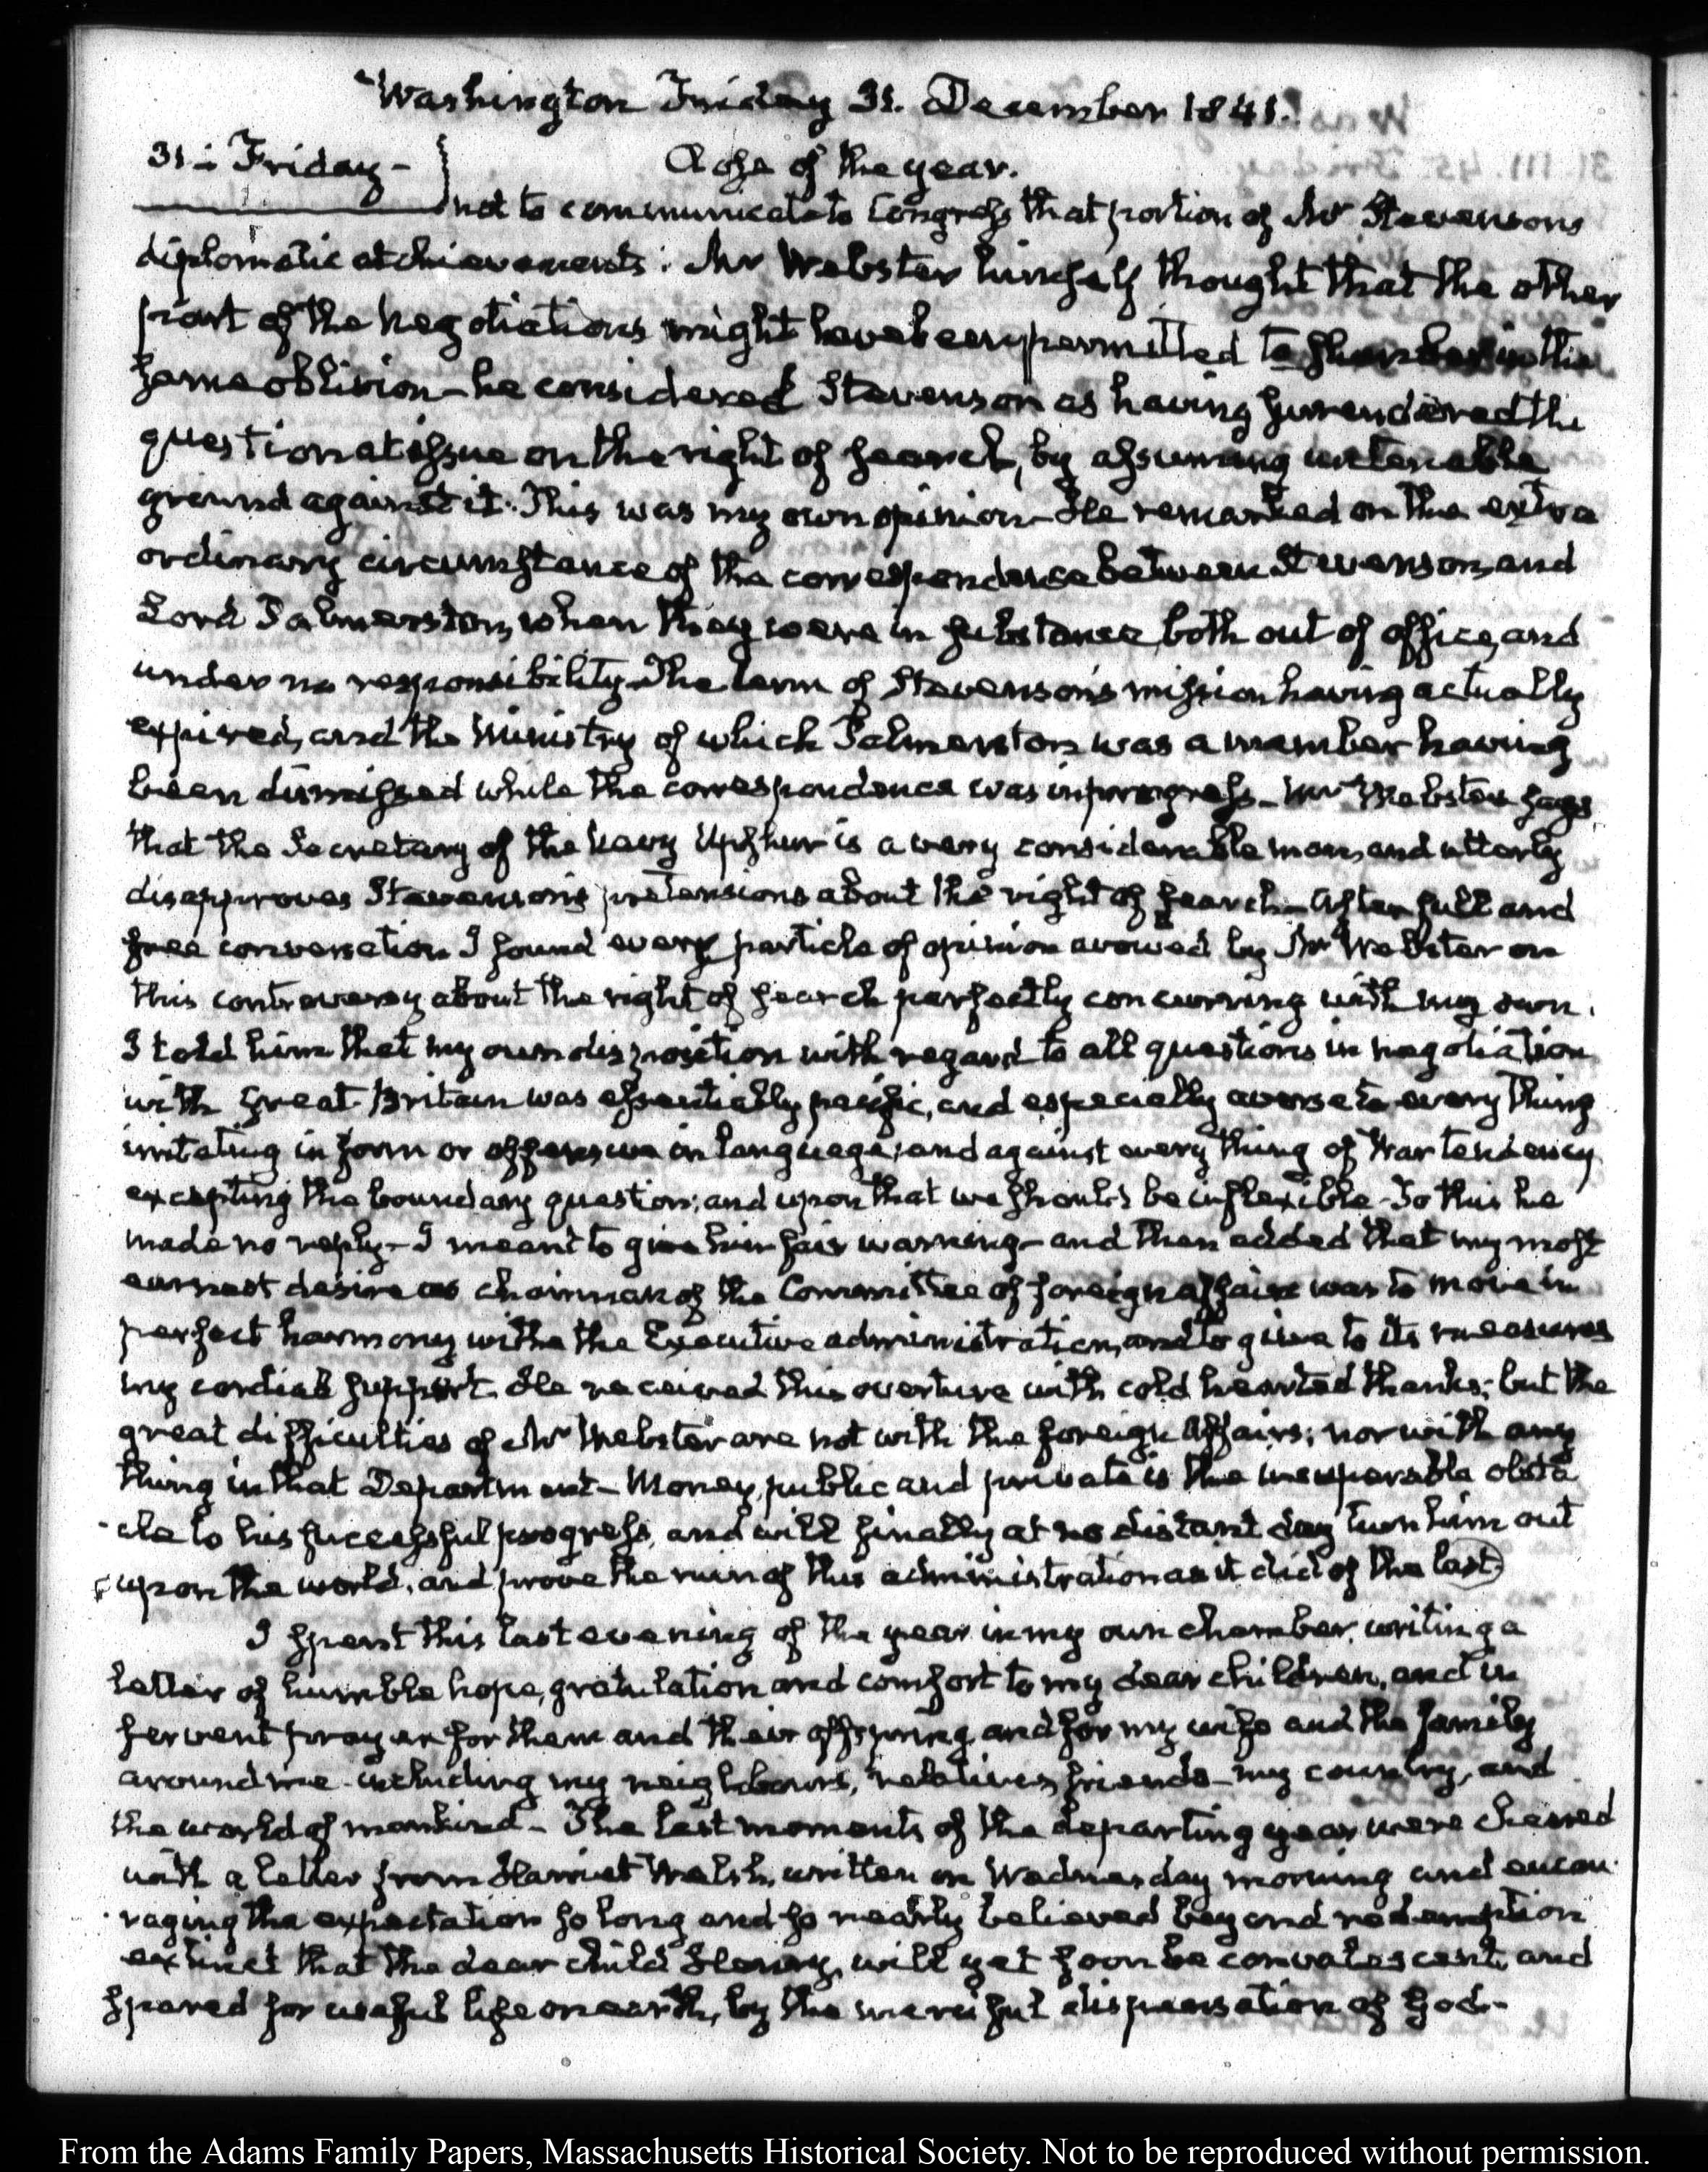 Washington Friday 31. December 1841.
31. Friday - Close of the year.
not to communicate to Congress that portion of Mr Stevensons
diplomatic atchievements. Mr Webster himself thought that the other
part of the negotiations might have been permitted to slumber in the
same oblivion - he considered Stevenson as having surrendered the
question at issue on the right of search, by assuming untenable
ground against it. This was my own opinion - He remarked on the extra
ordinary circumstance of the correspondence between Stevenson, and
Lord Palmerston, when they were in substance both out of office, and
under no responsibility. The term of Stevenson's mission having actually
expired, and the Ministry of which Palmerston was a member having
been dismissed while the correspondence was in progress - Mr Webster says
that the Secretary of the Navy Upshur is a very considerable man, and utterly
disapproves Stevenson's pretensions about the right of search - After full and
free conversation I found every particle of opinion avowed by Mr Webster on
this controversy about the right of search perfectly concurring with my own.
I told him that my own disposition with regard to all questions in negotiation
with Great-Britain was essentially pacific, and especially averse to every thing
irritating in form or offensive in language; and against every thing of War tendency
excepting the boundary question; and upon that we should be inflexible - To this he
made no reply - I meant to give him fair warning - and then added that my most
earnest desire as chairman of the Committee of foreign affairs was to move in
perfect harmony withe the Executive administration, and to give to its measures
my cordial support. He received this overture with cold hearted thanks; but the
great difficulties of Mr Webster are not with the foreign Affairs; nor with any
thing in that Department - Money, public and private is the insuperable obsta
-cle to his successful progress, and will finally at no distant day turn him out
upon the world, and prove the ruin of this administration as it did of the last
I spent this last evening of the year in my own chamber, writing a
letter of humble hope, gratulation and comfort to my dear children, and in
fervent prayer for them and their offspring, and for my wife and the family
around me - including my neighbours, relatives, friends - my country, and
the world of mankind - The last moments of the departing year were cheered
with a letter from Harriet Welsh, written on Wednesday morning and encou
-raging the expectation so long and so nearly believed beyond redemption
extinct that the dear child Henry, will yet soon be convalescent, and
spared for useful life on earth, by the merciful dispensation of God -
From the Adams Family Papers, Massachusetts Historical Society. Not to be reproduced without permission.